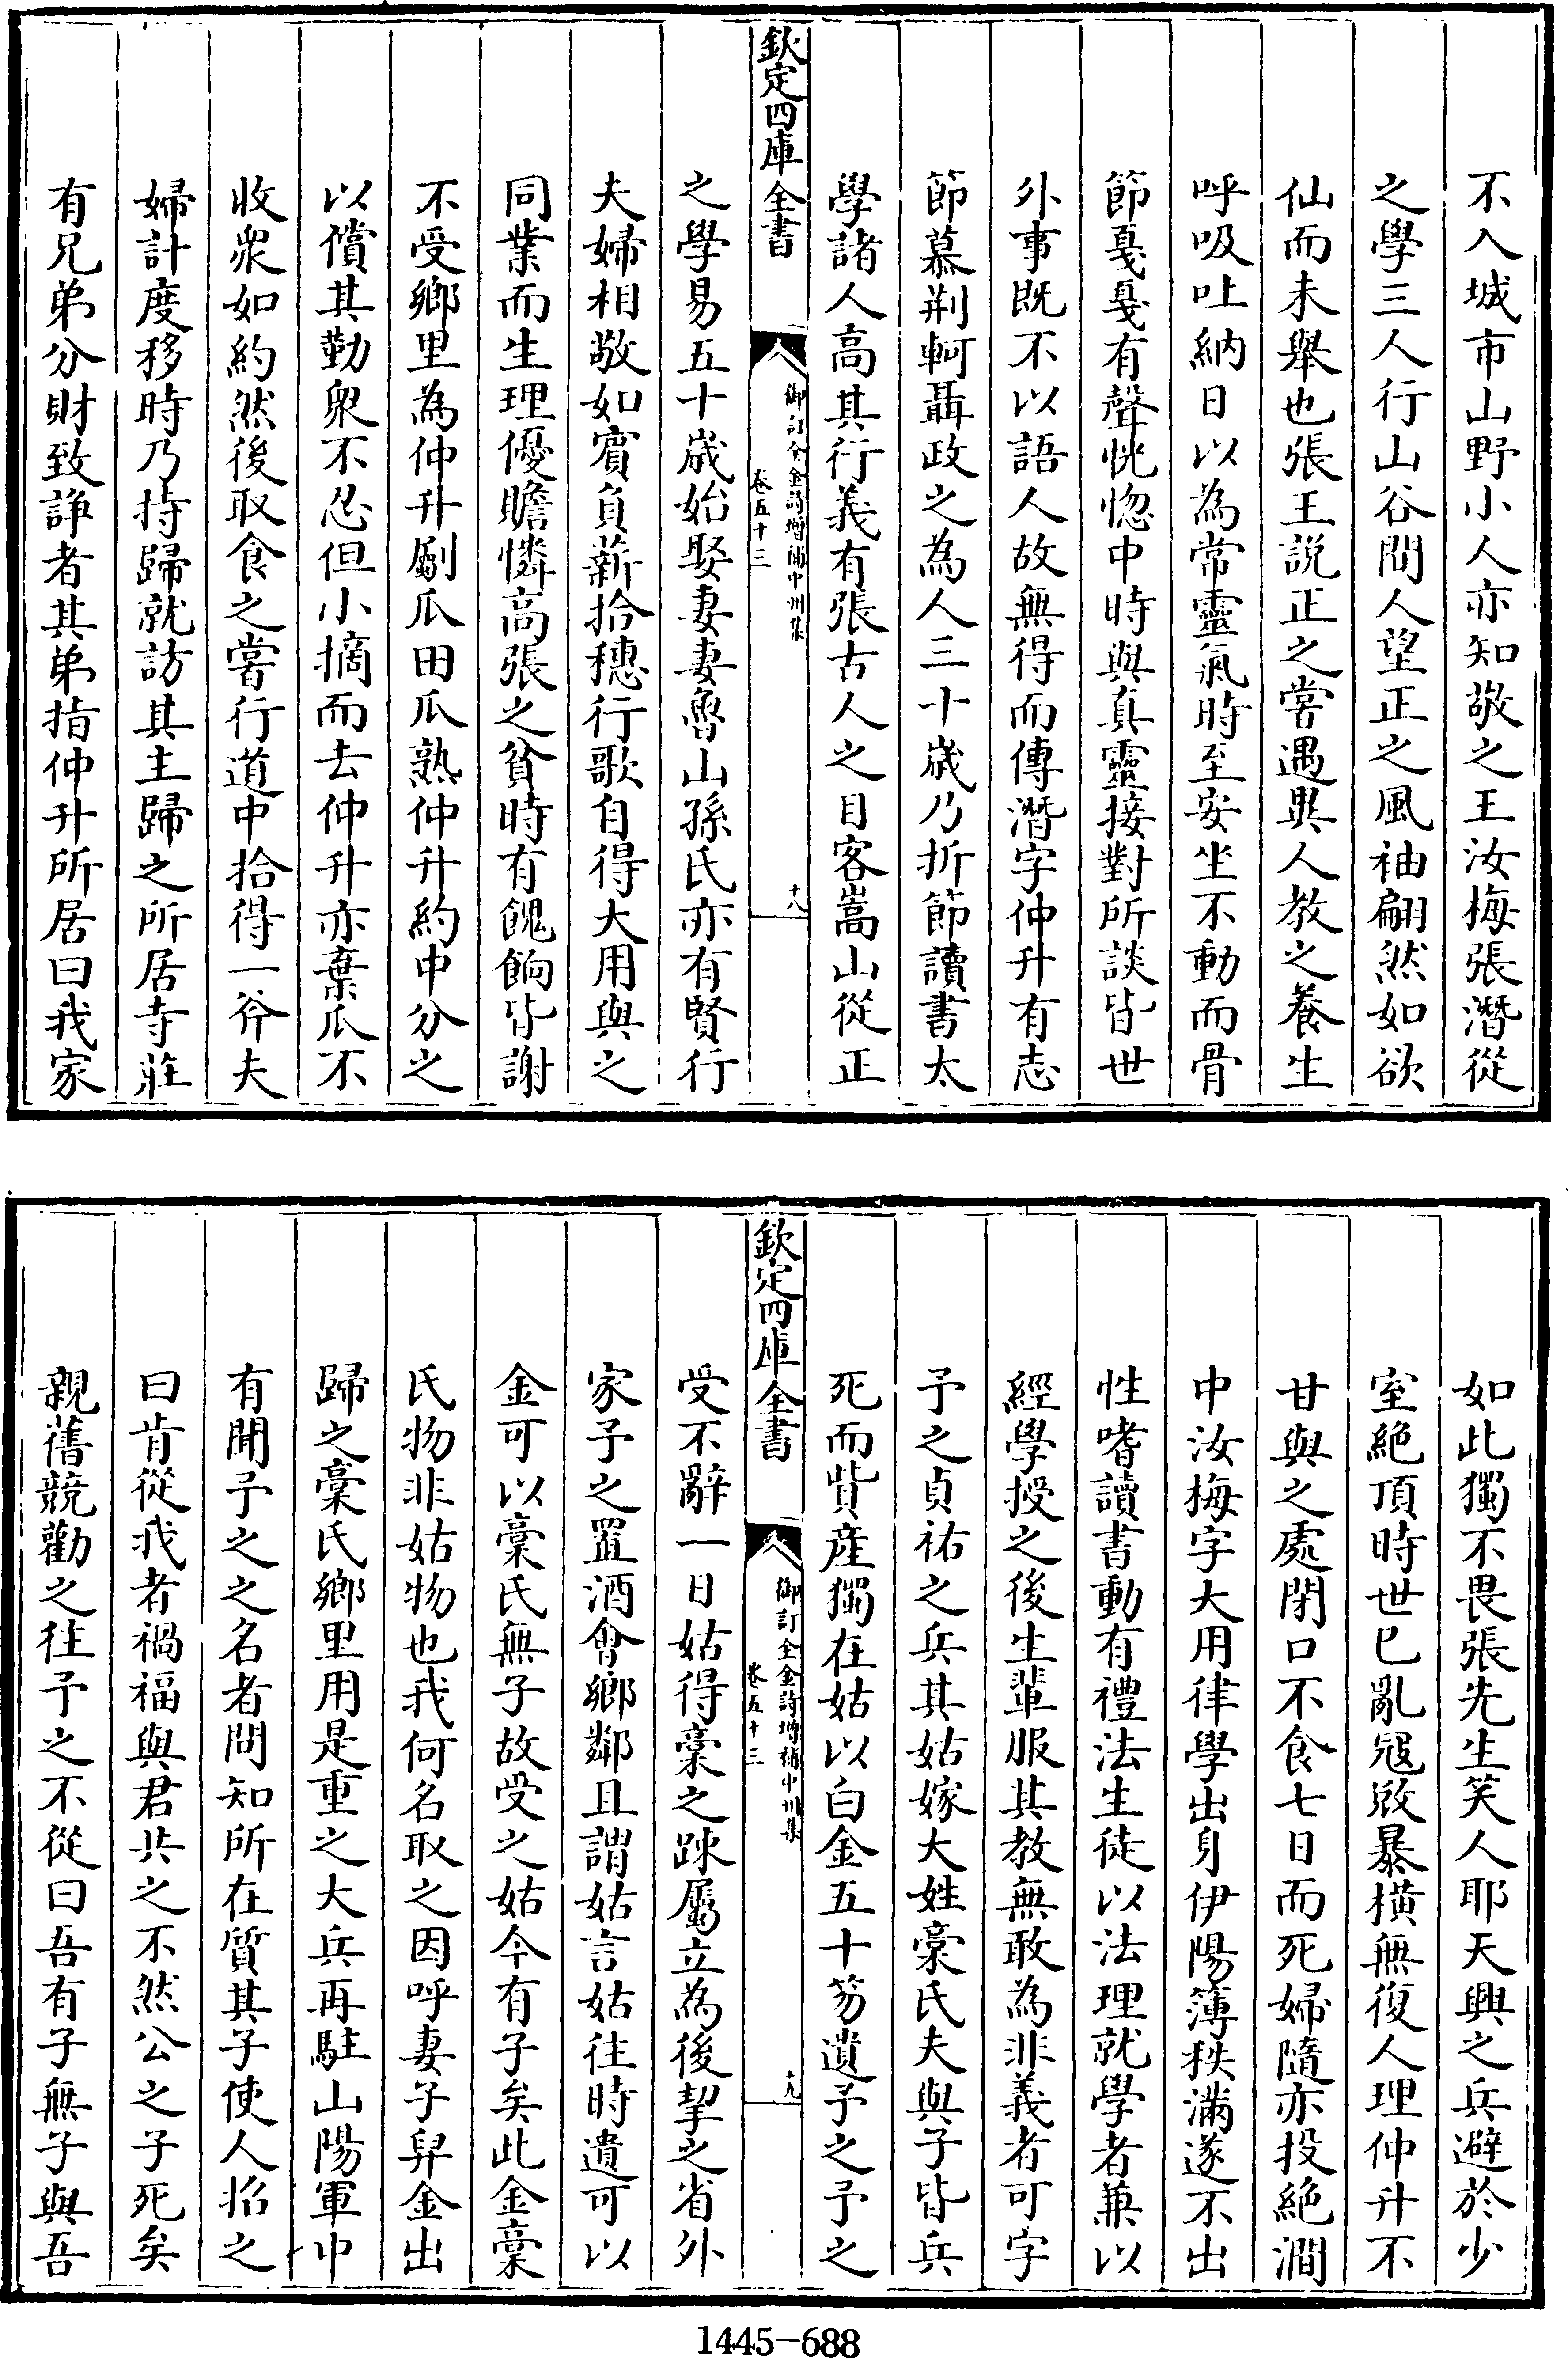 不入城市山野小人亦知敬之王汝梅張潛從
之學三人行山谷間人望正之風袖翩然如欲
仙而未舉也張王説正之嘗遇異人教之養生
呼吸吐納日以為常靈氣時至安坐不動而骨
節戛戛有聲恍惚中時與真靈接對所談皆世
外事既不以語人故無得而傳潛字仲升有志
節慕荆軻聶政之為人三十歲乃折節讀書太
學諸人高其行義有張古人之目客嵩山從正
欽定四庫全書
御訂全金詩增補中州集
卷五十三
十八
之學易五十歲始娶妻妻魯山孫氏亦有賢行
夫婦相敬如賓負薪拾穗行歌自得大用與之
同業而生理優贍憐高張之貧時有餽餉皆謝
不受鄉里為仲升劚瓜田瓜熟仲升約中分之
以償其勤衆不忍但小摘而去仲升亦棄瓜不
收衆如約然後取食之嘗行道中拾得一斧夫
婦計度移時乃持歸就訪其主歸之所居寺莊
有兄弟分財致諍者其弟指仲升所居曰我家
如此獨不畏張先生笑人耶天興之兵避於少
室絶頂時世已亂冦敚暴横無復人理仲升不
甘與之處閉口不食七日而死婦隨亦投絶澗
中汝梅字大用律學出身伊陽簿秩滿遂不出
性嗜讀書動有禮法生徒以法理就學者兼以
經學授之後生輩服其教無敢為非義者可字
予之貞祐之兵其姑嫁大姓稾氏夫與子皆兵
死而貲産獨在姑以白金五十笏遺予之予之
欽定四庫全書
御訂全金詩增補中州集
卷五十三
十九
受不辭一日姑得稾之踈屬立為後挈之省外
家予之置酒會鄉鄰且謂姑言姑往時遺可以
金可以稾氏無子故受之姑今有子矣此金稾
氏物非姑物也我何名取之因呼妻子舁金出
歸之稾氏鄉里用是重之大兵再駐山陽軍中
有聞予之之名者問知所在質其子使人招之
曰肯從我者禍福與君共之不然公之子死矣
親舊競勸之往予之不從曰吾有子無子與吾
1445-688